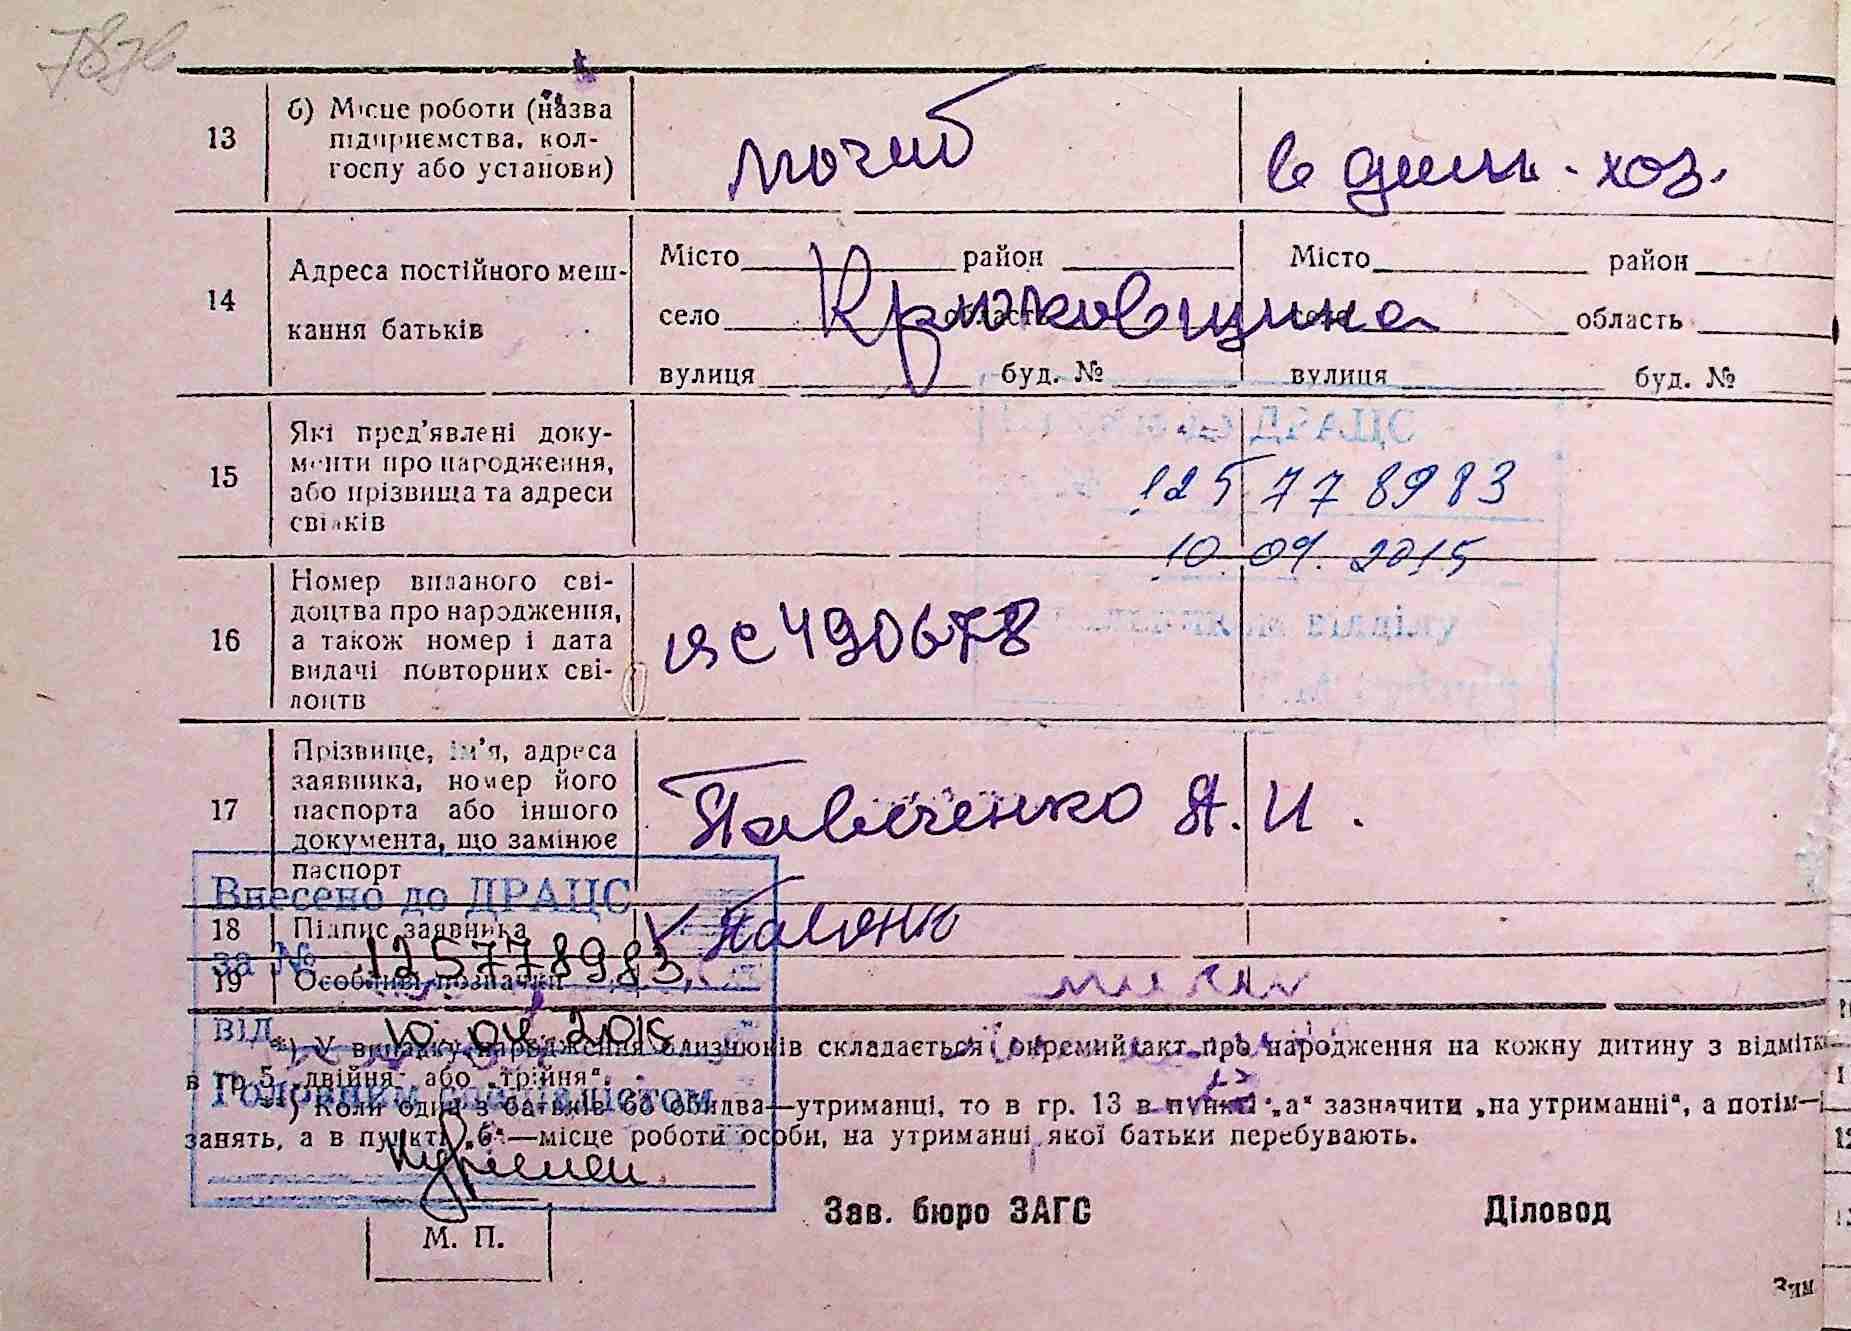 787в
13
б) Місце роботи (назва
підприємства, кол-
госпу або установи)
в дом. хоз.
14
Адреса постійного меш-
кання батьків
Місто район Місто район
село область село область
Крюковщина
вулиця буд. № вулиця буд. №
15
Які пред’явлені доку-
менти про народження,
або прізвища та адреси
свідків
до ДРАЦС
125778983
10.09.2015
16
Номер виданого сві-
доцтва про народження,
а також номер і дата
видачі повторних сві-
доцтв
ЯС 490678
відділу
17
Прізвище, ім’я, адреса
заявника, номер його
паспорта або іншого
документа, що замінює
паспорт
А. И.
Внесено до ДРАЦС
18 Підпис заявника
за № 125778983
19 Особливі позначки
від 10.04.2015
*) У випадку народження близнюків складається окремий акт про народження на кожну дитину з відмітк
в гр. 5 „двійня“ або „трійня“.
Головним спеціалістом
**) Коли один з батьків бо обидва—утриманці, то в гр. 13 в пункті „а“ зазначити „на утриманні“, а потім—
занять, а в пункті „б“—місце роботи особи, на утриманні якої батьки перебувають.
Зав. бюро ЗАГС Діловод
М. П.
Зим